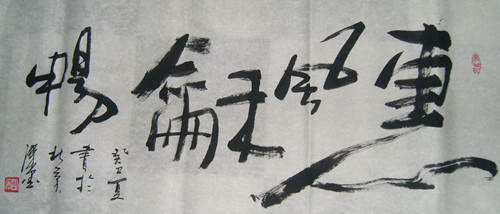 惠風龢暢
癸 夏
書於
北京